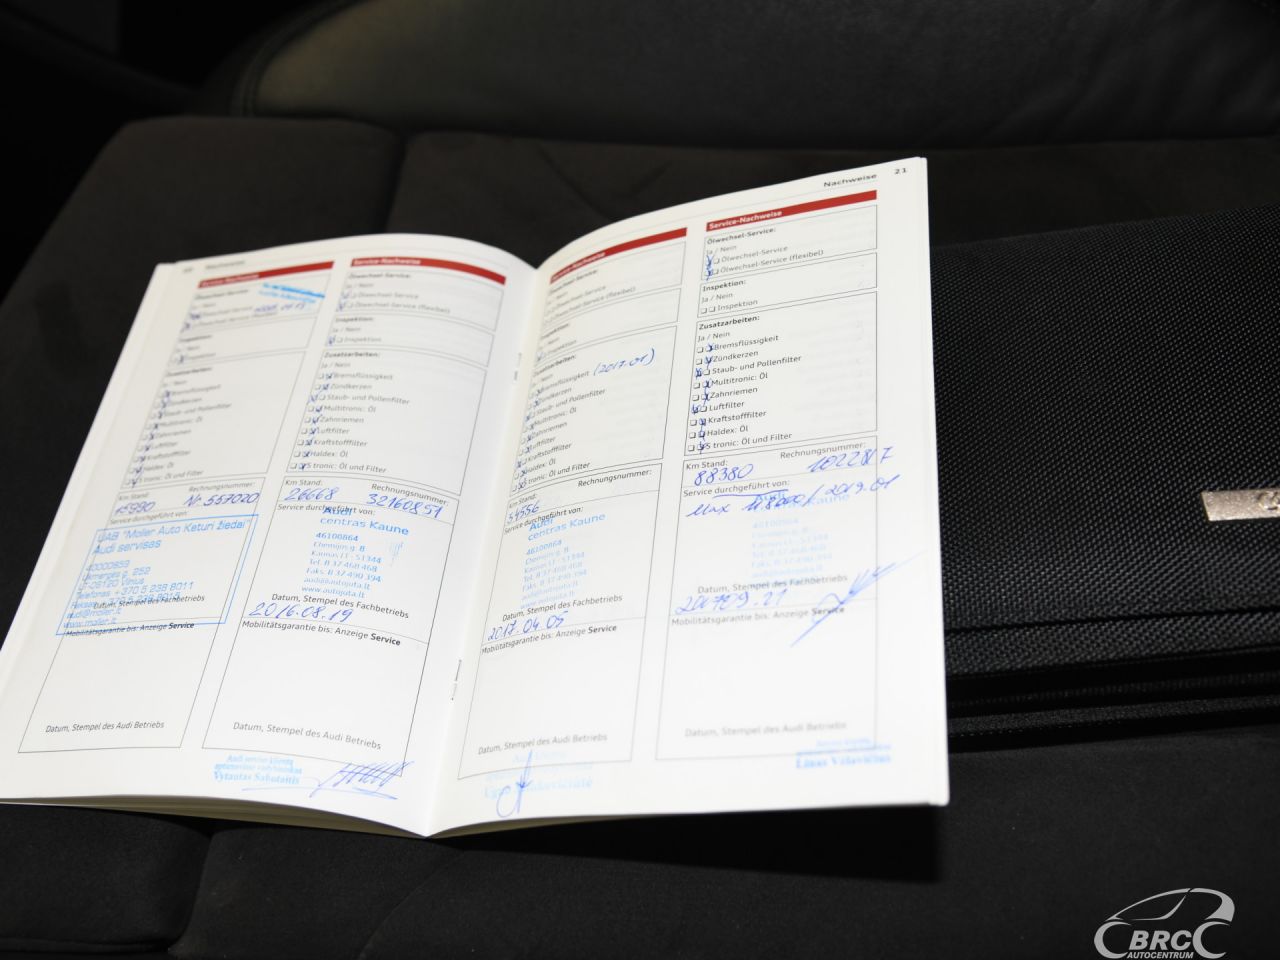 Nachweise
Service-Nachweise
Ölwechsel-Service:
Ja / Nein
Ölwechsel-Service
Ölwechsel-Service (flexibel)
Inspektion:
Ja / Nein
Inspektion
Zusatzarbeiten:
Ja / Nein
Bremsflüssigkeit
Zündkerzen
Staub- und Pollenfilter
Multitronic: Öl
Zahnriemen
Luftfilter
Kraftstofffilter
Haldex: Öl
S tronic: Öl und Filter
Km Stand:
Rechnungsnummer:
15990 Nr. 557020
Service durchgeführt von:
UAB "Moller Auto Keturi žiedai"
Audi servisas
Ukmergės g. 252
Vilnius
Telefonas +370 5 238 8011
audi@moller.lt
www.moller.lt
Datum, Stempel des Fachbetriebs
Mobilitätsgarantie bis: Anzeige Service
Datum, Stempel des Audi Betriebs
Service-Nachweise
Ölwechsel-Service:
Ja / Nein
Ölwechsel-Service
Ölwechsel-Service (flexibel)
Inspektion:
Ja / Nein
Inspektion
Zusatzarbeiten:
Ja / Nein
Bremsflüssigkeit
Zündkerzen
Staub- und Pollenfilter
Multitronic: Öl
Zahnriemen
Luftfilter
Kraftstofffilter
Haldex: Öl
S tronic: Öl und Filter
Km Stand:
Rechnungsnummer:
26668 32160851
Service durchgeführt von:
Audi
centras Kaune
46100864
Chemijos g. 8
Kaunas LT - 51344
Tel. 8 37 468 468
Faks. 8 37 490 394
audi@autojuta.lt
www.autojuta.lt
Datum, Stempel des Fachbetriebs
2016.08.19
Mobilitätsgarantie bis: Anzeige Service
Datum, Stempel des Audi Betriebs
Audi serviso klientų
aptarnavimo vadybininkas
Vytautas Sabutaitis
Service-Nachweise
Ölwechsel-Service:
Ja / Nein
Ölwechsel-Service
Ölwechsel-Service (flexibel)
Inspektion:
Ja / Nein
Inspektion
Zusatzarbeiten:
Ja / Nein
Bremsflüssigkeit (2017.01)
Zündkerzen
Staub- und Pollenfilter
Multitronic: Öl
Zahnriemen
Luftfilter
Kraftstofffilter
Haldex: Öl
S tronic: Öl und Filter
Km Stand:
Rechnungsnummer:
54556
Service durchgeführt von:
Audi
centras Kaune
46100864
Chemijos g. 8
Kaunas LT - 51344
Tel. 8 37 468 468
Faks. 8 37 490 394
audi@autojuta.lt
www.autojuta.lt
Datum, Stempel des Fachbetriebs
2017.04.05
Mobilitätsgarantie bis: Anzeige Service
Datum, Stempel des Audi Betriebs
Nachweise 21
Service-Nachweise
Ölwechsel-Service:
Ja / Nein
Ölwechsel-Service
Ölwechsel-Service (flexibel)
Inspektion:
Ja / Nein
Inspektion
Zusatzarbeiten:
Ja / Nein
Bremsflüssigkeit
Zündkerzen
Staub- und Pollenfilter
Multitronic: Öl
Zahnriemen
Luftfilter
Kraftstofffilter
Haldex: Öl
S tronic: Öl und Filter
Km Stand:
Rechnungsnummer:
88380 1022817
Service durchgeführt von:
Max 118000 / 2019.01
Audi
centras Kaune
46100864
Chemijos g. 8
Kaunas LT - 51344
Tel. 8 37 468 468
Faks. 8 37 490 394
Datum, Stempel des Fachbetriebs
201709.21
Mobilitätsgarantie bis: Anzeige Service
Datum, Stempel des Audi Betriebs
BRC
AUTOCENTRUM